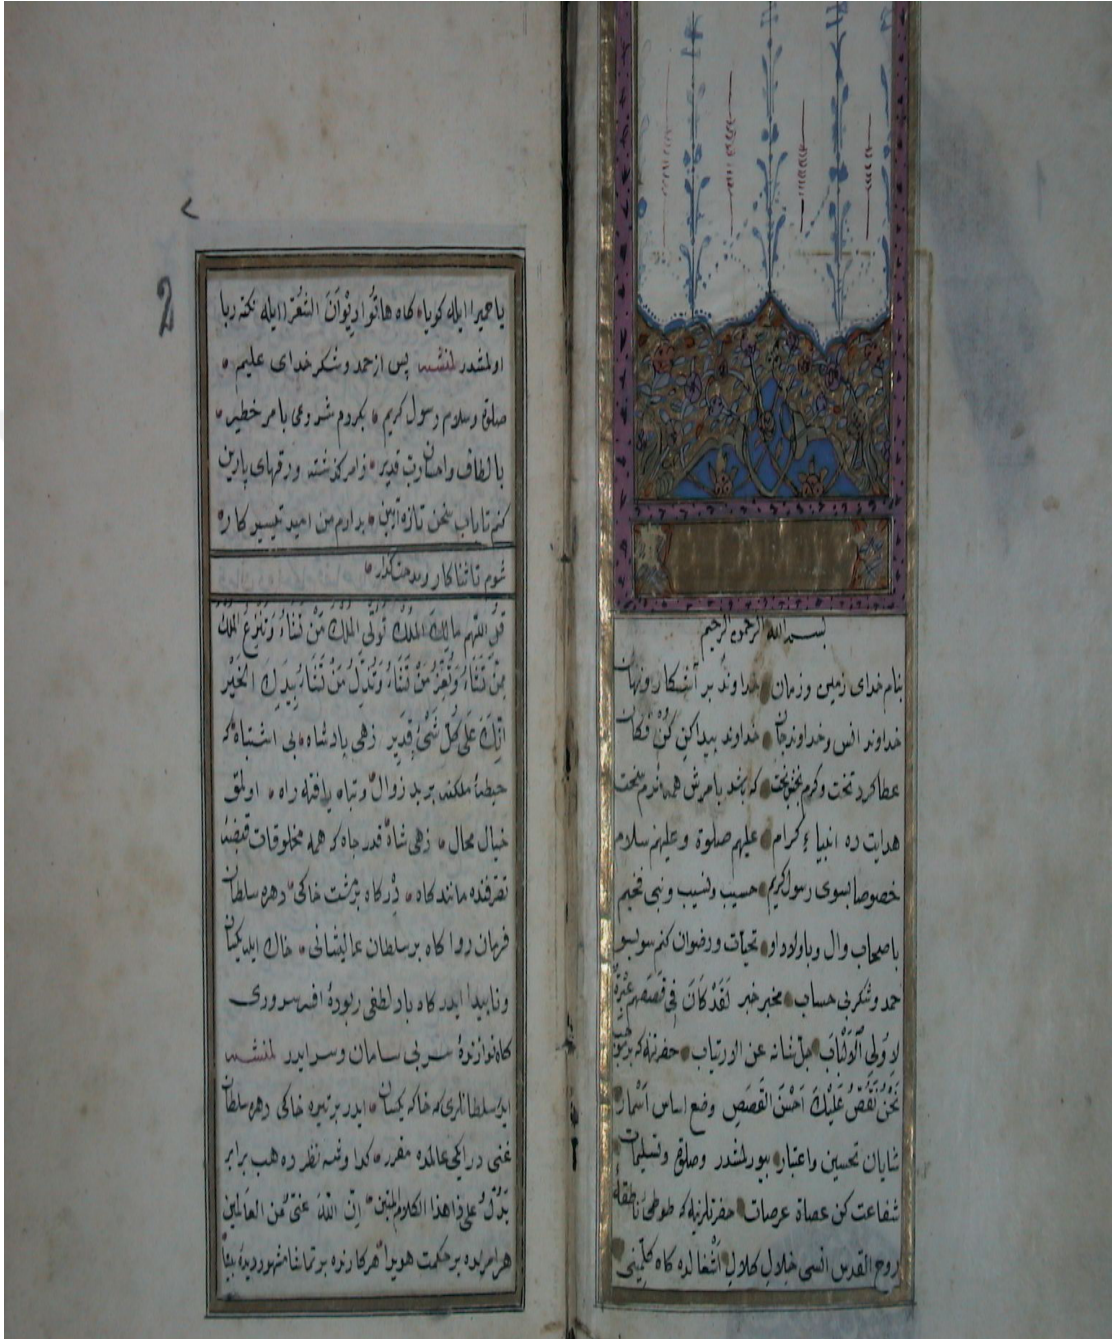 بسم الله الرحمن الرحيم
بنام خدای زمین و زمان خداوند بر آشکار و نهان
خداوند انس و خداوند جان خداوند پیدا کن کن فکان
عطا کرد تخت و کرم
هدایت ده انبیاء کرام علیهم صلوة و علیهم سلام
خصوصا بسوی رسول کریم حسیب و نسیب و نبی فخیم
باصحاب وال و باولاد او تحیات و رضوان کنم سو بسو
حمد و شکر بی حساب مخبر خبر لَقَدْ كَانَ فِي قَصَصِهِمْ عِبْرَةٌ
لِأُولِي الْأَلْبَابِ جل شانه عن الارتیاب حضرتنه که
نَحْنُ نَقُصُّ عَلَيْكَ أَحْسَنَ الْقَصَصِ وضع اساس اسمار
شایان تحسین و اعتبار بیورلمشدر وصلوة و تسلیمات
شفاعت کن عصاة عرصات حضرتلرینه که طوطی ناطقهٔ
روح القدس انسی خلال کلال اشغالده کاه کلّمینی
یا حمیرا ایله کویا کاه هاتوا دِیْوَانَ الشعرا ایله نکته ربا
اولمشدر لمنشئه پس از حمد و شکر خدای علیم
صلوة و سلام رسول کریم بکردم شروعی بامر خطیر
بالطاف و احسان رب قدیر ز امر گذشته ورقهای پارین
کنم تا باب سخن تازه آیین بدارم من امید تیسیر کاره
شوم تا ثناکار
قل اللّهم مالك الملك تؤتی الملك من تشاء وتنزع الملك
ممّن تشاء وتعزّ من تشاء وتذلّ من تشاء بيدك الخير
انّك علی كلّ شیء قدیر زهی پادشاه بی اشتباه که
حیطهٔ ملکنه برید زوال و تباه یافته راه اولمق
خیال محال زهی شاه قدر جاه که همه مخلوقات قبضهٔ
تصرفنده مانند کاه در کاه بر مشت خاکی دهره سلطان
فرمان روا کاه بر سلطان عالیشانی خاک ایله یکسان
و ناپیدا ایدر کاه باد لطفی ربودهٔ افسر سروری
کاه نوازندهٔ سر بی سامان و سر ایدر لمنشئه
ایدر سلطانلری که خاکه یکسان ایدر بر تیره خاکی دهره سلطان
غنی در اکی عالمده مقرر کدا و شه نظر ده هب برابر
يدلّ علی ذا هذا الكلام المبین انّ الله غنیّ عن العالمین
هر امرنده بر حکمت هویدا هر کارنده بر تماشا مشهور دیدهٔ بینا
2